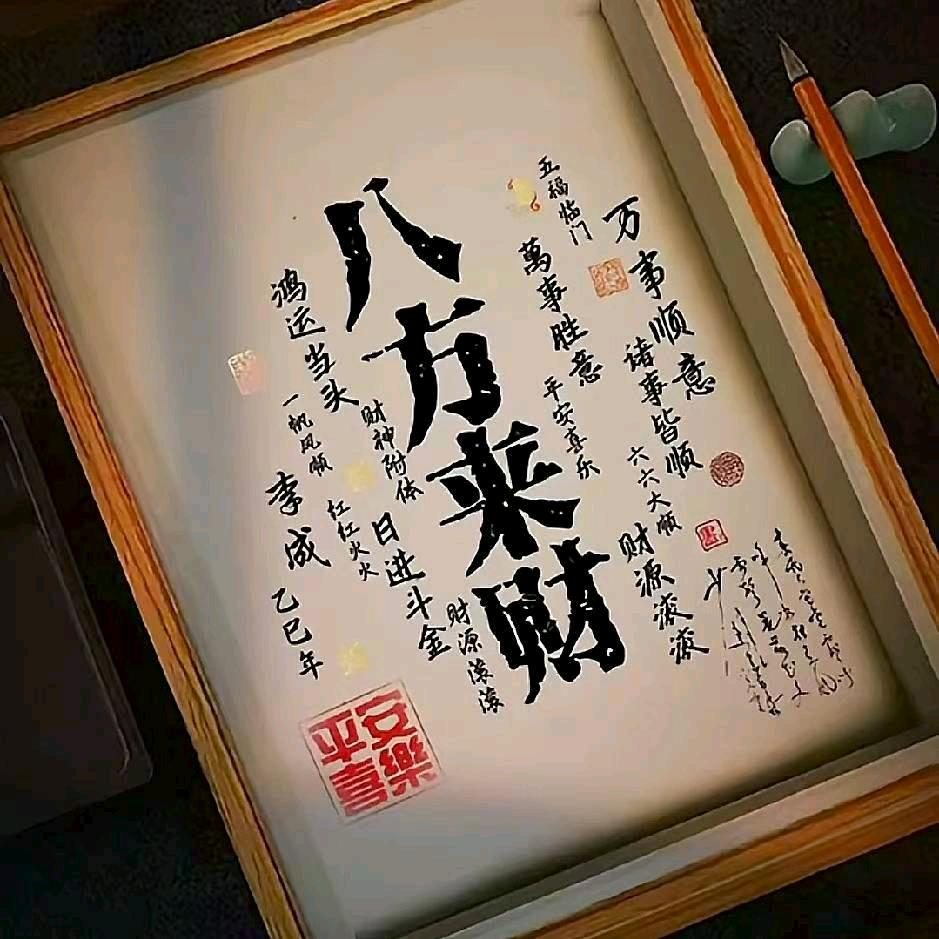 万事顺意
诸事皆顺
六六大顺
财源滚滚
五福临门
萬事胜意
平安喜乐
八方来财
财源滚滚
财神附体
日进斗金
鸿运当头
一帆风顺
红红火火
李成
乙巳年
平安
喜樂